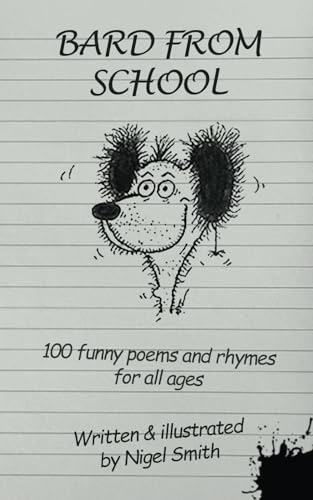 BARD FROM
SCHOOL
100 funny poems and rhymes
for all ages
Written & illustrated
by Nigel Smith